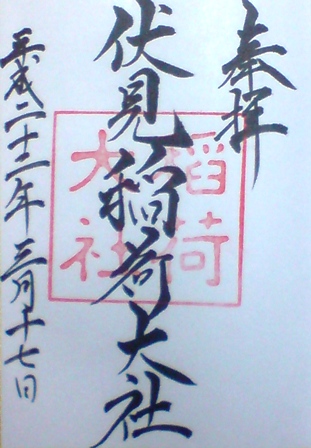 奉拝
伏見稲荷大社
稲荷
大社
平成二十二年三月十七日